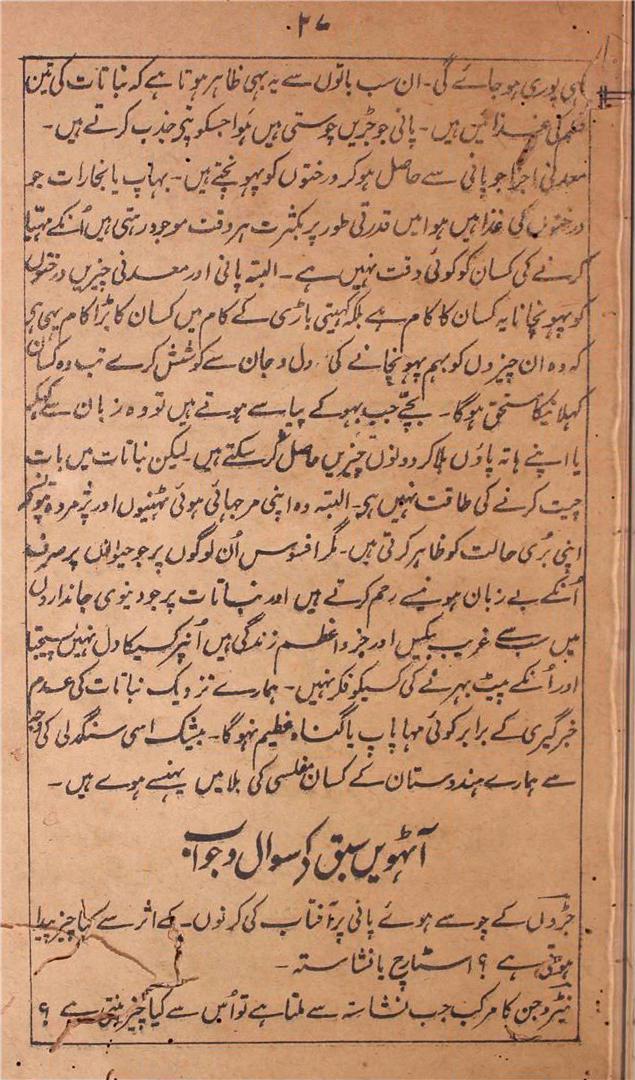 ۲۷
ہی پوری ہو جائے گی۔ ان سب باتوں سے یہ بہی ظاہر ہوتا ہے کہ نباتات کی تین
قسم کی غذائیں ہیں۔ پانی جو جڑیں چوستی ہیں ہوا جسکو پتی جذب کرتے ہیں۔
معدنی اجزا جو پانی سے حاصل ہو کر درختوں کو پہونچتے ہیں۔ بہاپ یا بخارات جو
درختوں کی غذا ہیں ہوا میں قدرتی طور پر بکثرت ہر وقت موجود رہتی ہیں اُنکے مہیا
کرنے کی کسان کو کوئی دقت نہیں ہے۔ البتہ پانی اور معدنی چیزیں درختوں
کو پہونچانا یہ کسان کا کام ہے بلکہ کہیتی باڑی کے کام میں کسان کا بڑا کام یہی ہی
کہ وہ ان چیزوں کو بہم پہونچانے کی دل و جان سے کوشش کرے تب وہ کسان
کہلانیکا مستحق ہوگا۔ بچے جب بہوکے پیاسے ہوتے ہیں تو وہ زبان سے کہکر
یا اپنے ہاتہ پاؤں ہلا کر دونوں چیزیں حاصل کر سکتے ہیں۔ لیکن نباتات میں بات
چیت کرنے کی طاقت نہیں ہی۔ البتہ وہ اپنی مرجہائی ہوئی ٹہنیوں اور پژمردہ
اپنی بُری حالت کو ظاہر کرتی ہیں۔ مگر افسوس اُن لوگوں پر جو حیوانوں پر صرف
اُنکے بے زبان ہونیسے رحم کرتے ہیں اور نباتات پر جو دنیوی جانداروں
میں سب سے غریب بیکس اور جزو اعظم زندگی ہیں اُنپر کسیکا دل نہیں پسیجتا
اور اُنکے پیٹ بہرنے کی کسیکو فکر نہیں۔ ہمارے نزدیک نباتات کی عدم
خبرگیری کے برابر کوئی مہا پاپ یا گناہ عظیم نہوگا۔ بیشک اسی سنگدلی کی وجہ
سے ہمارے ہندوستان کے کسان مفلسی کی بلا میں پہنسے ہوے ہیں۔
آٹہویں سبق کے سوال و جواب
جڑوں کے چوسے ہوئے پانی پر آفتاب کی کرنوں۔ کے اثر سے کیا چیز پیدا
ہوتی ہے ؟ اسٹارچ یا نشاستہ۔
نیٹروجن کا مرکب جب نشاستہ سے ملتا ہے تو اُس سے کیا چیز بنتی ہے ؟